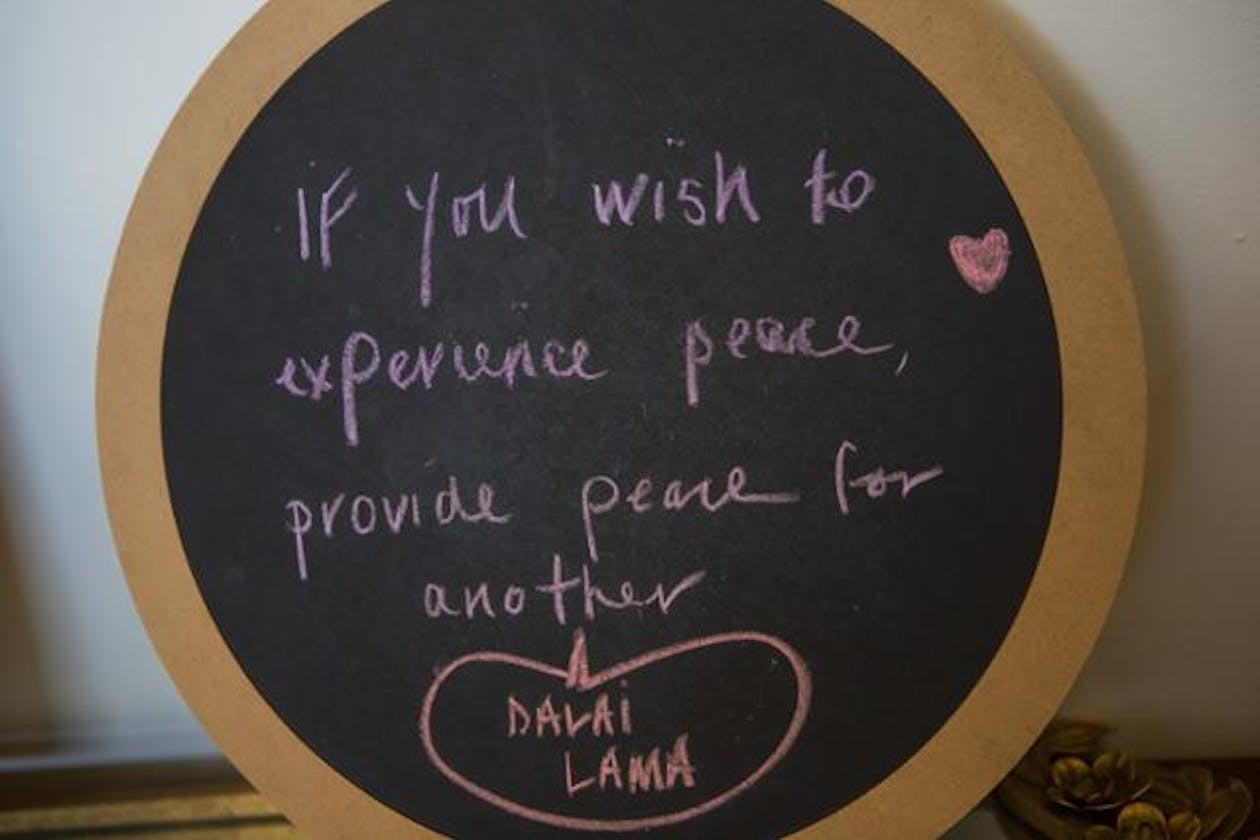 If you wish to
experience peace,
provide peace for
another
DALAi
LAMA